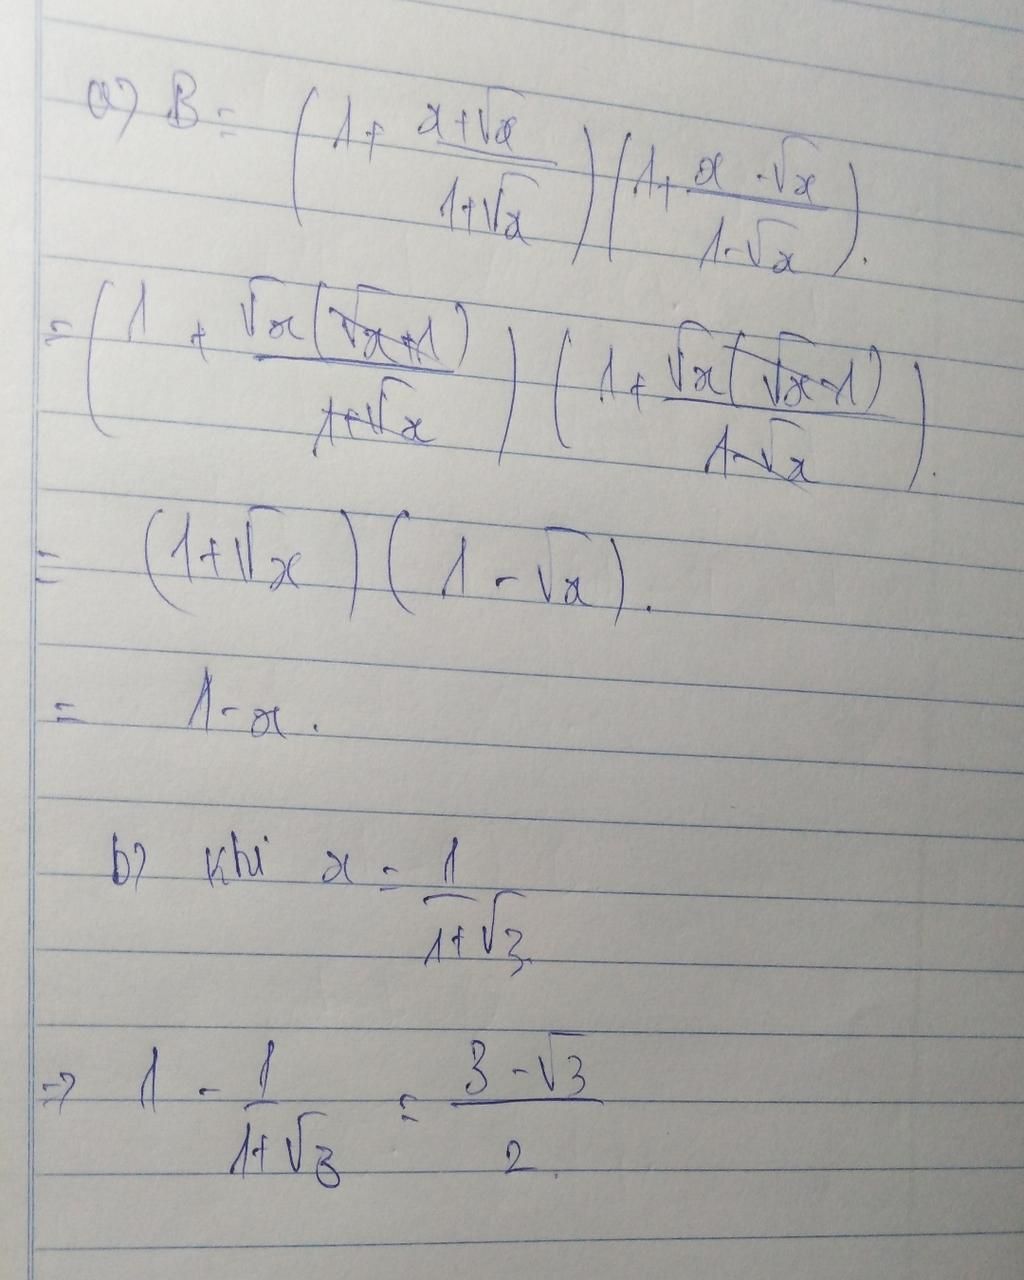 a) B = (1 + (x+√x)/(1+√x)) (1 + (x-√x)/(1-√x)).
= (1 + √x(√x+1)/(1+√x)) (1 + √x(√x-1)/(1-√x)).
= (1+√x) (1-√x).
= 1-x.
b) Khi x = 1/(1+√3)
=> 1 - 1/(1+√3) = (3-√3)/2.